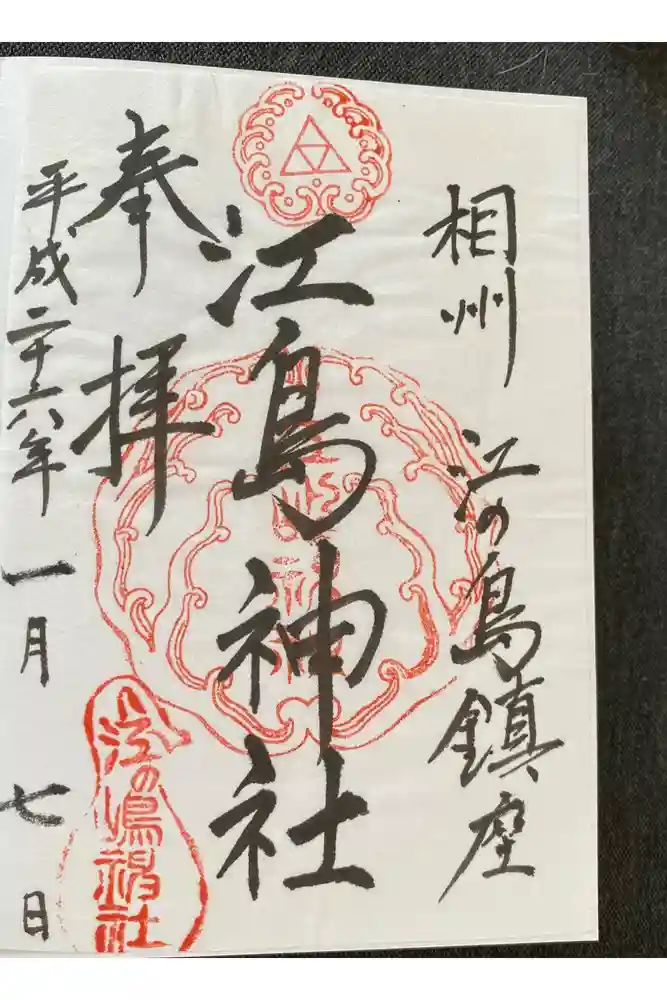 相州 江の島鎮座
江島神社
奉拝
平成二十六年 一月 七日
江の島神社